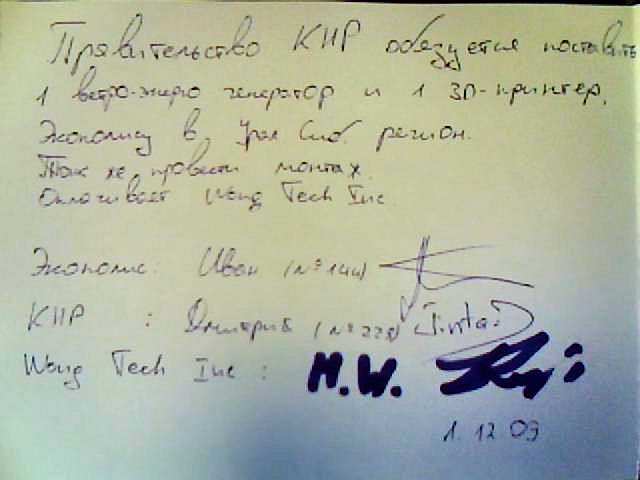 Правительство КНР обязуется поставить
1 ветро-энерго генератор и 1 3D-принтер,
Экополису в Урал Сиб. регион.
Так же, провести монтаж.
Оплачивает Wong Tech Inc.
Экополис: Иван (№144)
КНР : Дмитрий (№228)
Wong Tech Inc : M.W.
1.12.09